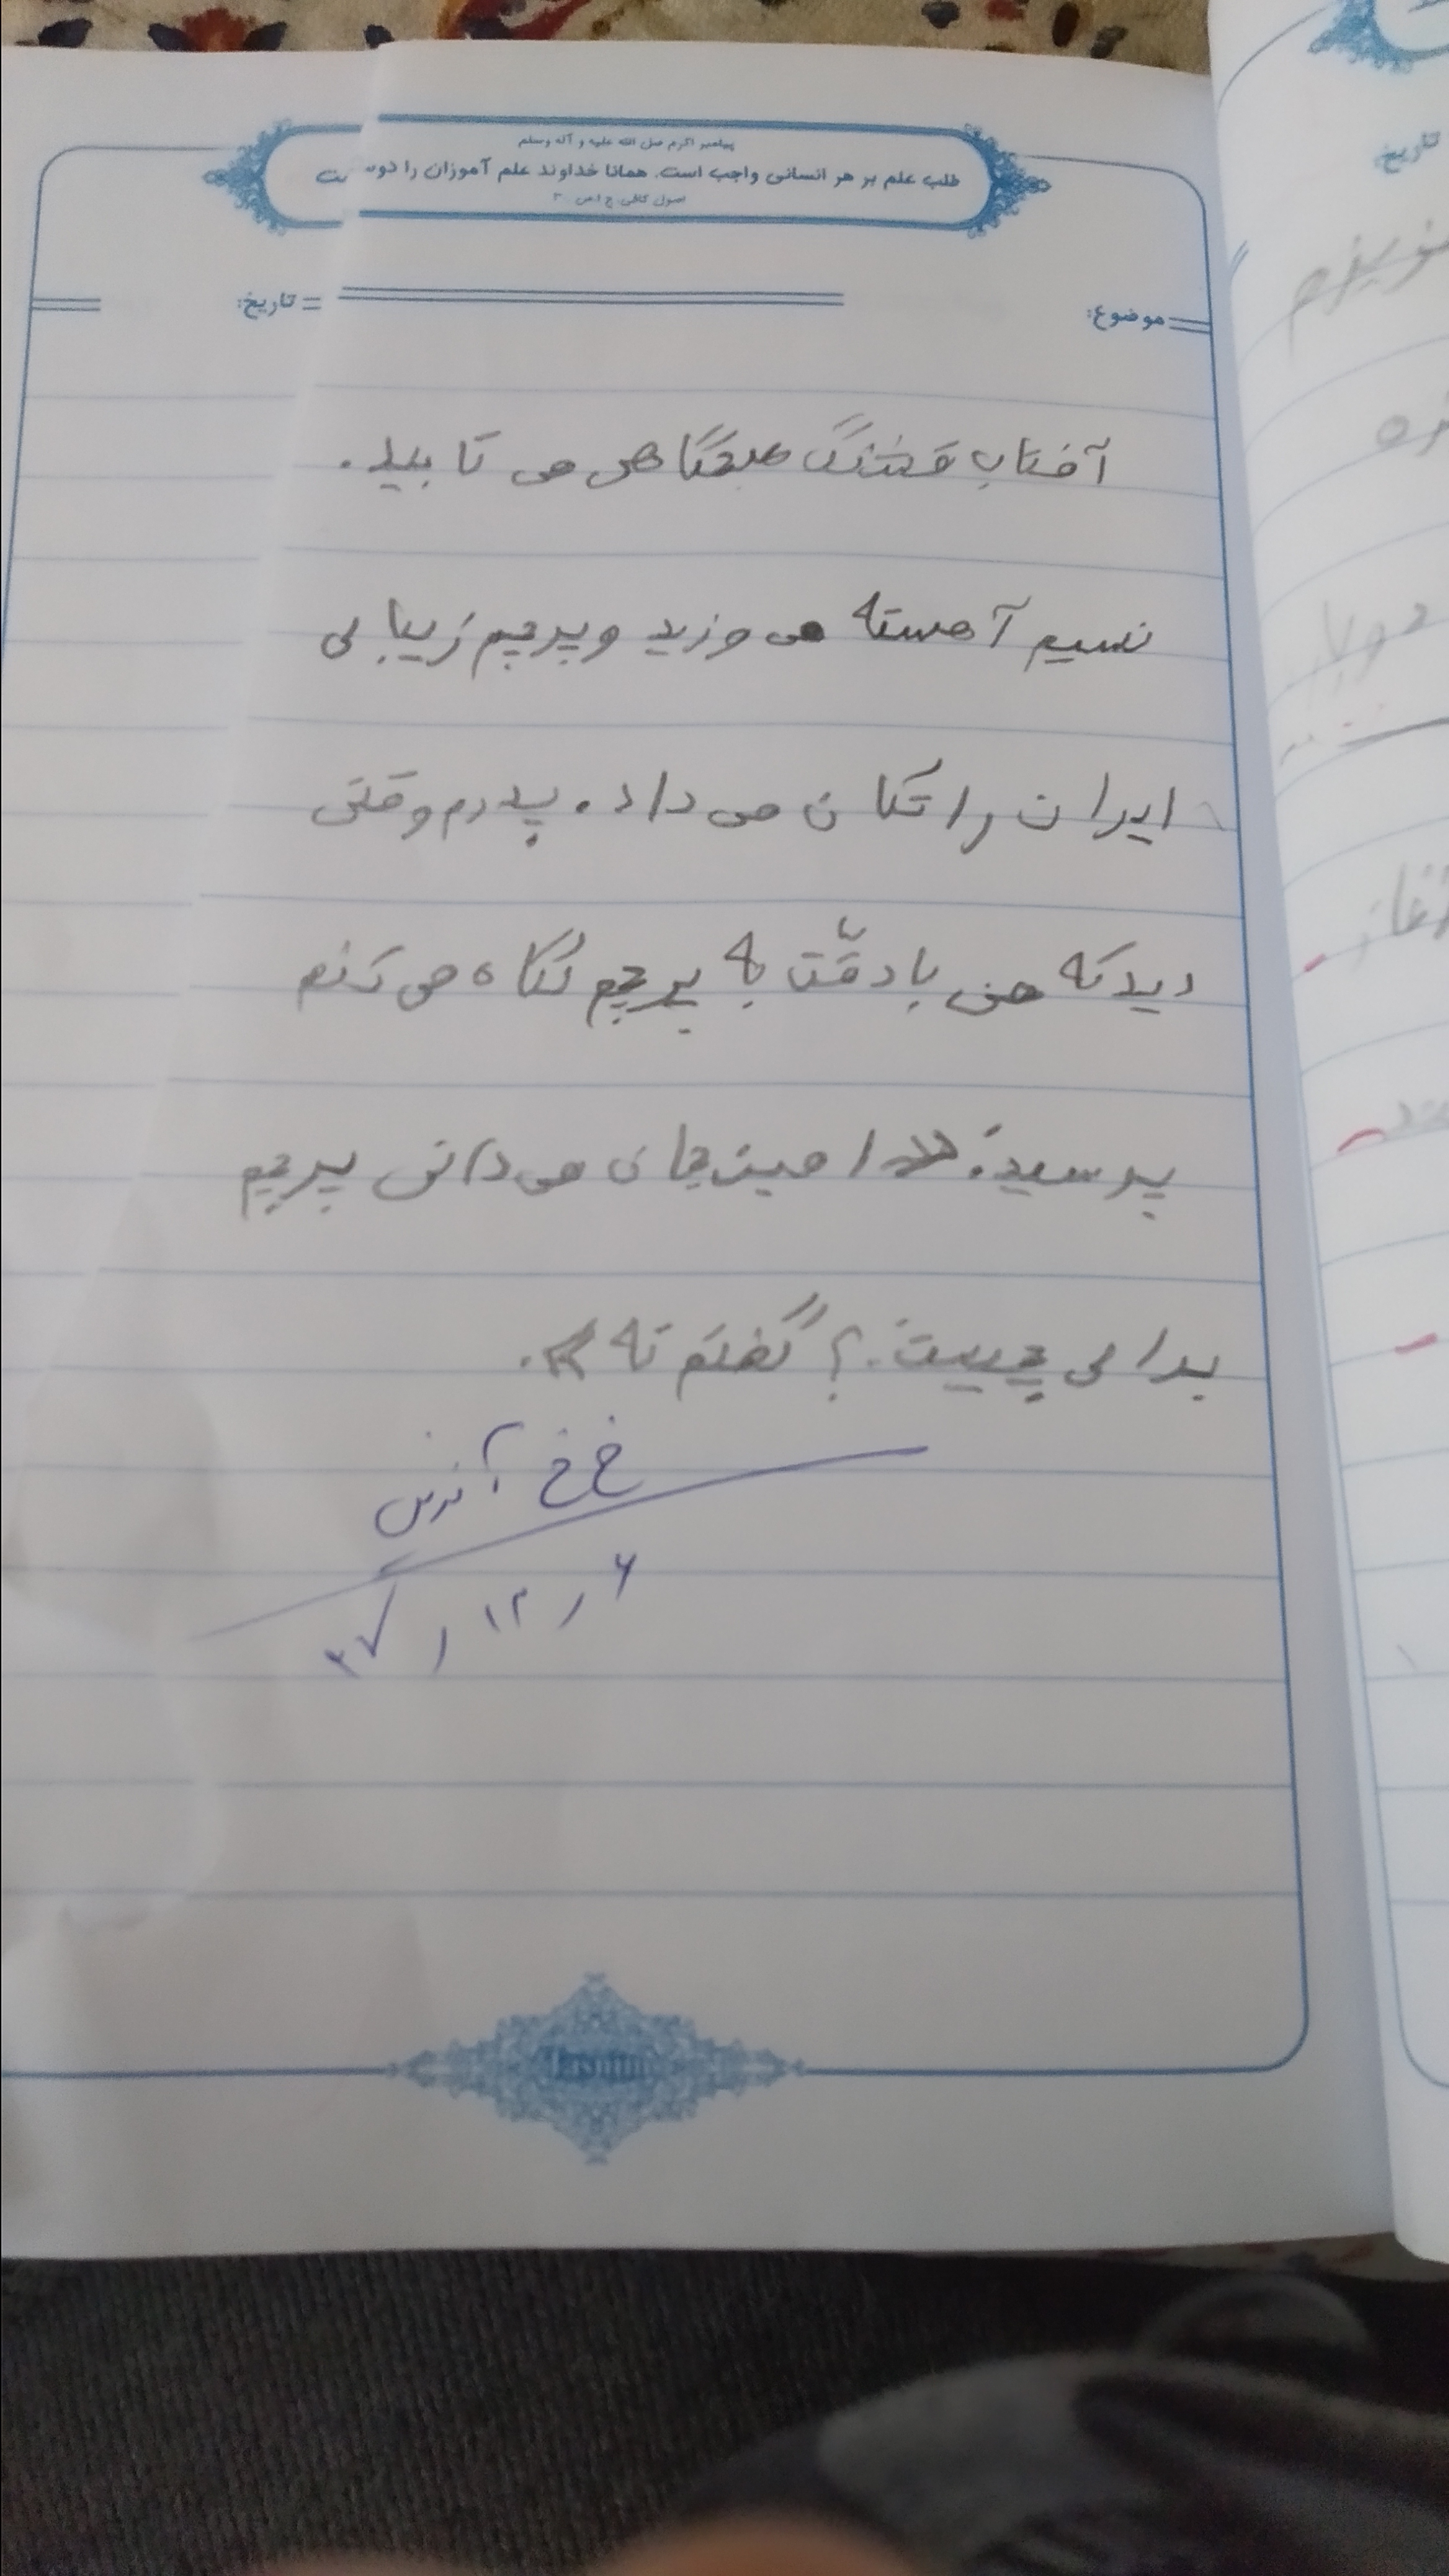 پیامبر اکرم صلی الله علیه و آله وسلم
طلب علم بر هر انسانی واجب است. همانا خداوند علم آموزان را دوست
اصول کافی ج ۱ ص ۳۰
موضوع:
تاریخ:
آفتاب قشنگ صبحگاهی می تابید.
نسیم آهسته می وزید و پرچم زیبای
ایران را تکان می داد. پدرم وقتی
دید که من با دقّت به پرچم نگاه می کنم
پرسید: «امین جان می دانی پرچم
برای چیست؟ گفتم نه».
خ خ آفرین
۶ ,۱۲, ۹۷
تاریخ:
آغاز